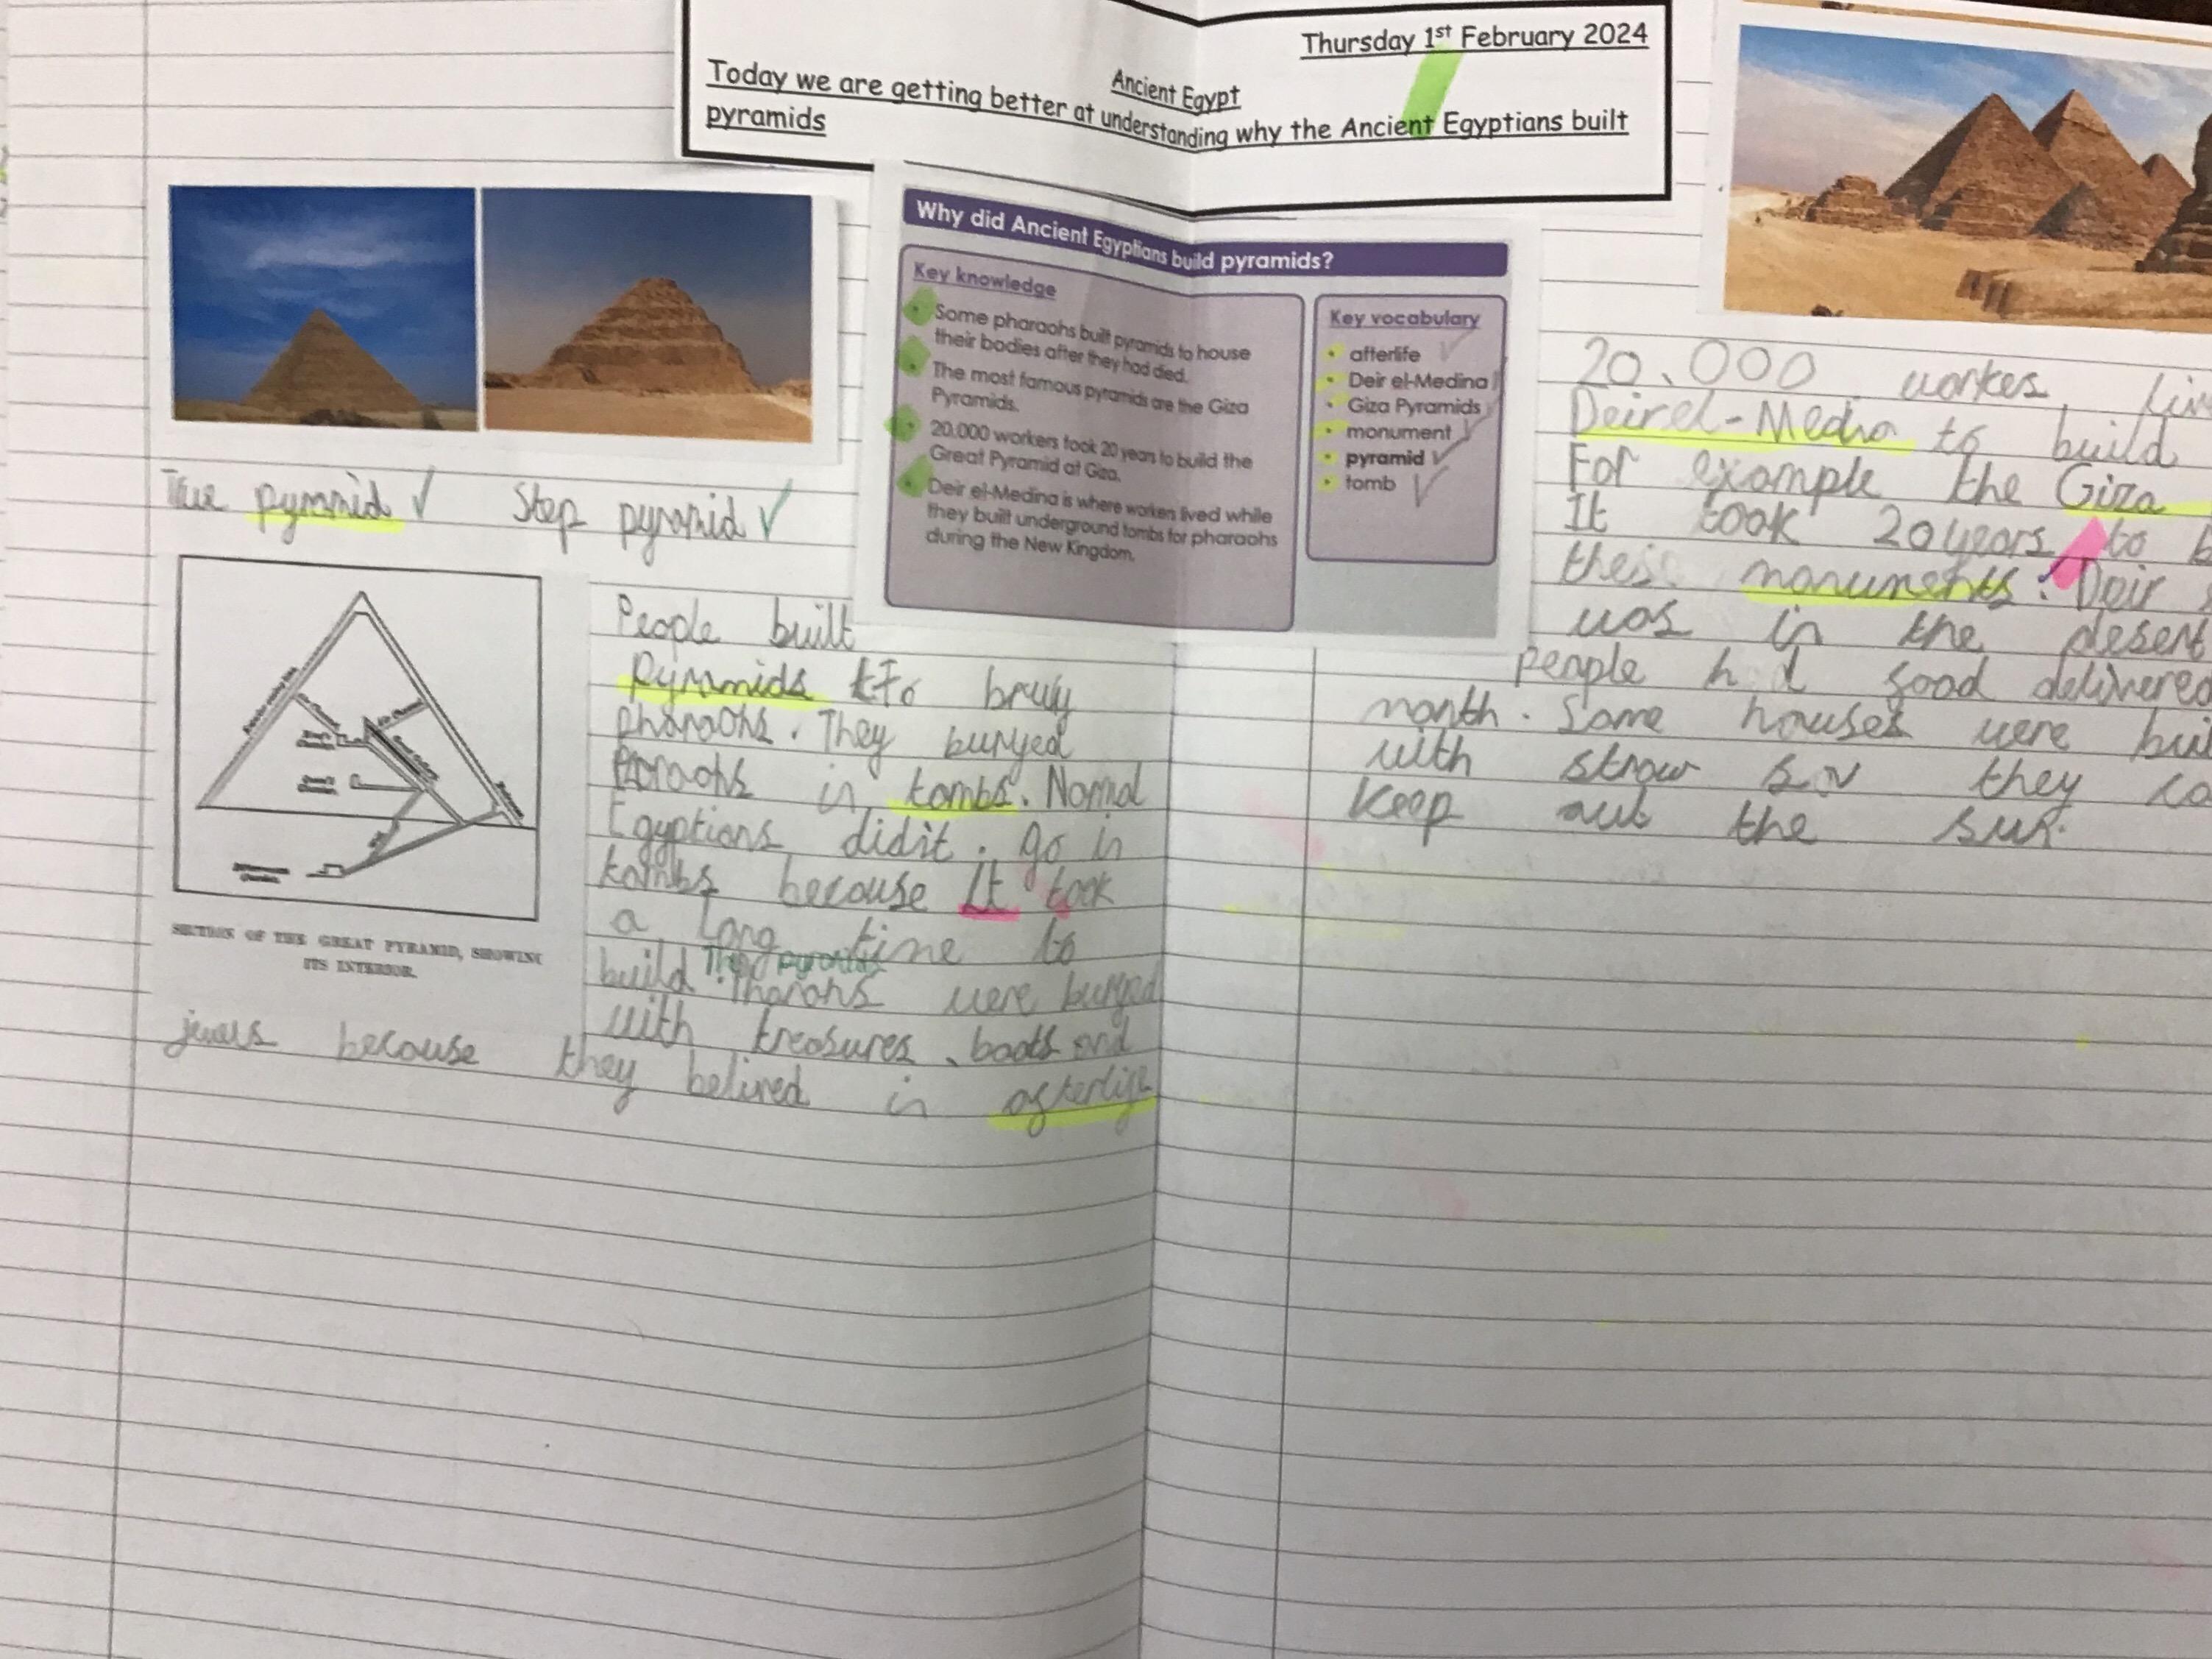 Thursday 1st February 2024
Ancient Egypt
Today we are getting better at understanding why the Ancient Egyptians built
pyramids
Why did Ancient Egyptians build pyramids?
Key knowledge
• Some pharaohs built pyramids to house
their bodies after they had died.
• The most famous pyramids are the Giza
Pyramids.
• 20,000 workers took 20 years to build the
Great Pyramid at Giza.
• Deir el-Medina is where workers lived while
they built underground tombs for pharaohs
during the New Kingdom.
Key vocabulary
• afterlife
• Deir el-Medina
• Giza Pyramids
• monument
• pyramid
• tomb
True pyramid ✓ Step pyramid ✓
SECTION OF THE GREAT PYRAMID, SHOWING
ITS INTERIOR.
People built
pyramids to bruiy
pharaohs. They buryed
Pharaohs in tombs. Normal
Egyptians didit. go in
tombs because It took
a long time to
build The pyramids. Pharaohs were buryed
with treasures, boats and
jewls because they belived in afterlife
20,000 workes
Deir el-Media to build
For example the Giza
It took 20 years to
their monuments. Deir
was in the desert
people had food delivered
month. Some houses were
with straw so they
keep out the sun.